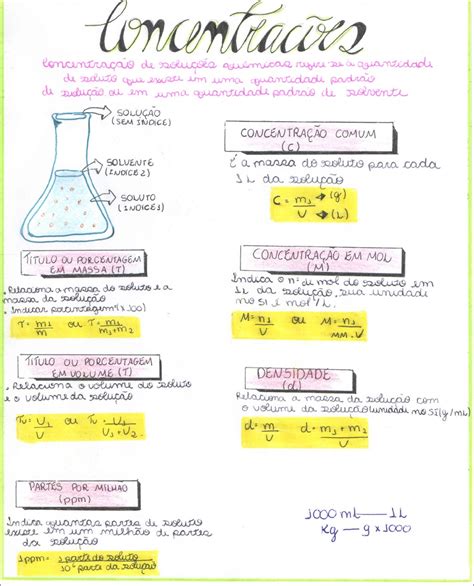 Concentrações
Concentração de soluções químicas refere-se a quantidade
de soluto que existe em uma quantidade padrão
de solução ou em uma quantidade padrão de solvente
SOLUÇÃO
(SEM INDICE)
SOLVENTE
(INDICE 2)
SOLUTO
(INDICE 1)
CONCENTRAÇÃO COMUM
(C)
É a massa do soluto para cada
1L da solução
C = m₁ → (g)
V → (L)
TITULO OU PORCENTAGEM
EM MASSA (T)
• Relaciona a massa do soluto e a
massa da solução
• Indicar porcentagem (x100)
T = m₁/m ou T = m₁/m₁+m₂
CONCENTRAÇÃO EM MOL
(M)
Indica o nº de mol do soluto em
1L da solução, sua unidade
no SI é mol/L.
M = n₁/V ou M = m₁/MM.V
TITULO OU PORCENTAGEM
EM VOLUME (T)
• Relaciona o volume do soluto
e o volume da solução
Tv = V₁/V ou Tv = V₁/V₁+V₂
DENSIDADE
(d)
Relaciona a massa da solução com
o volume da solução (unidade no SI (g/mL)
d = m/V d = m₁+m₂/V
PARTES POR MILHÃO
(ppm)
Indica quantas partes de soluto
existe em um milhão de partes
da solução
1ppm = 1 parte do soluto
10⁶ parte da solução
1000 mL — 1L
Kg — g x 1000